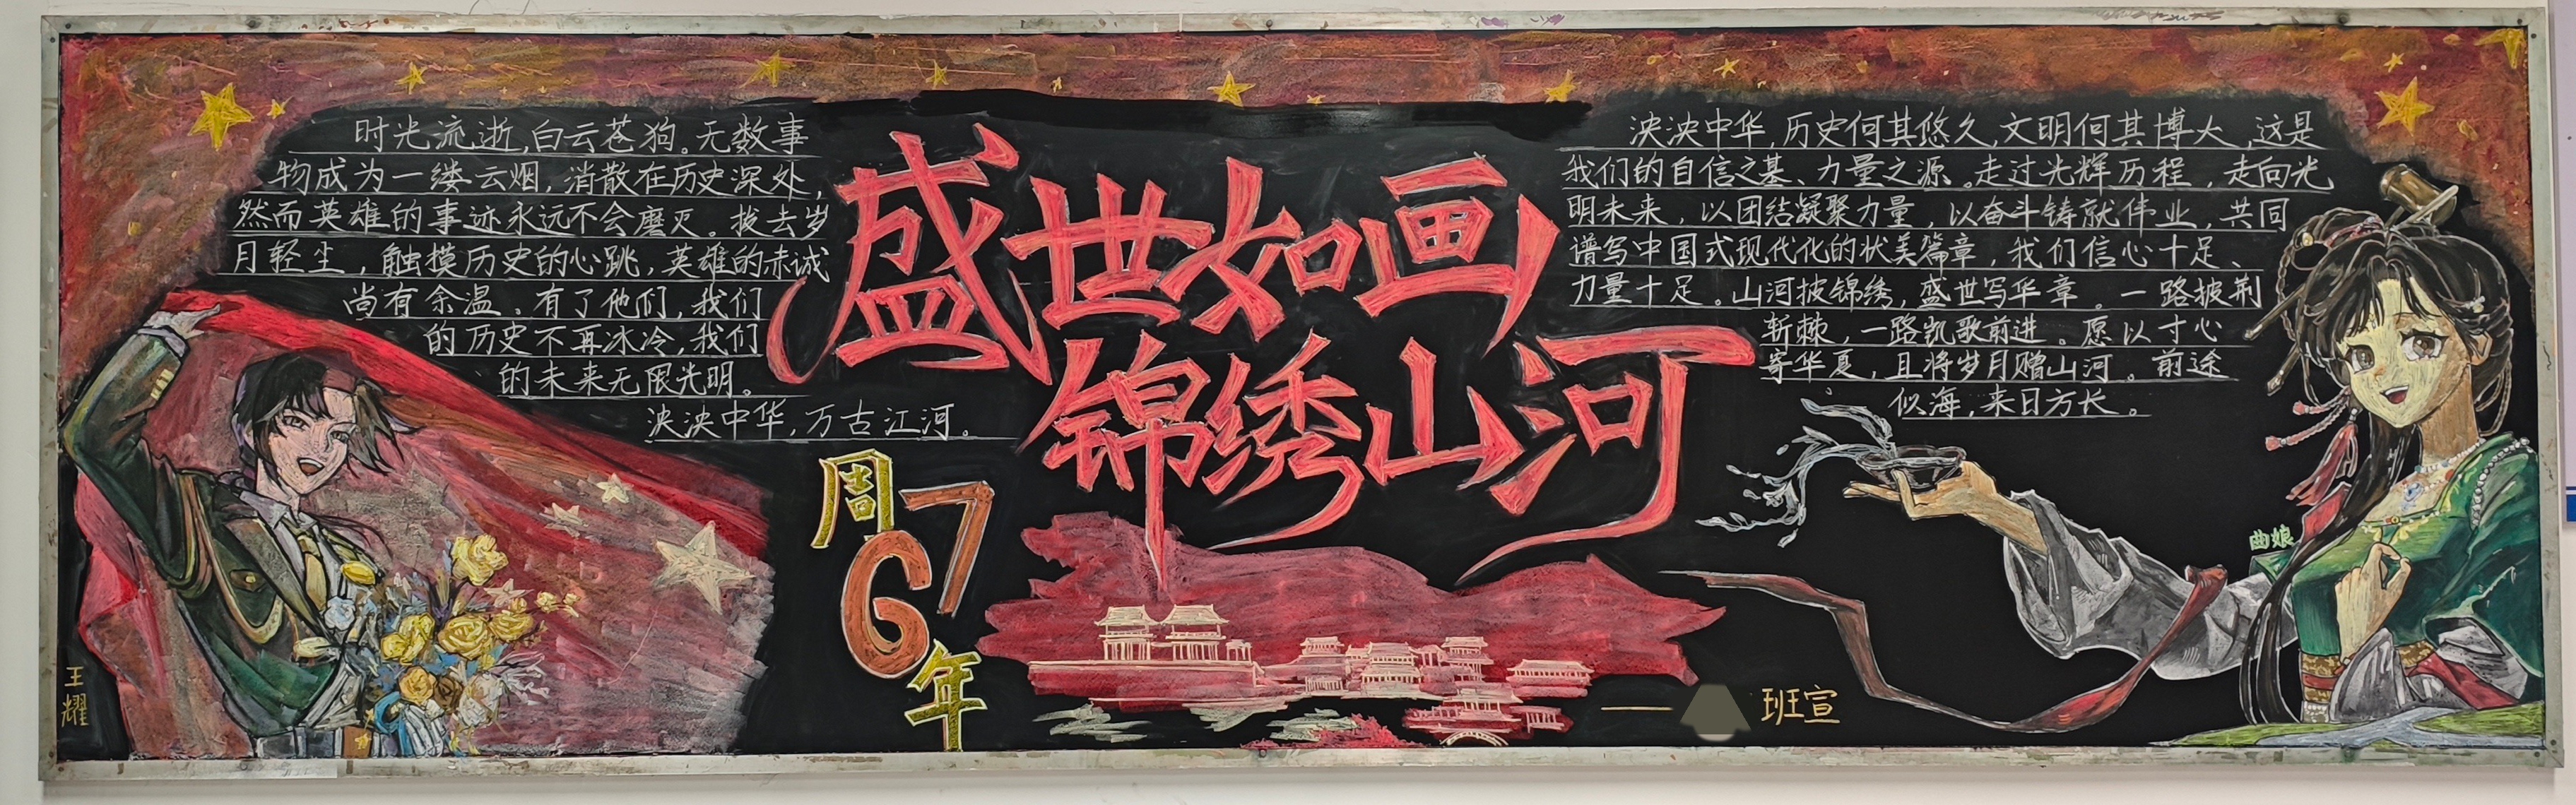 时光流逝,白云苍狗。无数事
物成为一缕云烟,消散在历史深处,
然而英雄的事迹永远不会磨灭。拨去岁
月轻尘,触摸历史的心跳,英雄的赤诚
尚有余温。有了他们,我们
的历史不再冰冷,我们
的未来无限光明。
泱泱中华,万古江河。
盛世如画
锦绣山河
周
76
年
泱泱中华,历史何其悠久,文明何其博大,这是
我们的自信之基、力量之源。走过光辉历程,走向光
明未来,以团结凝聚力量,以奋斗铸就伟业,共同
谱写中国式现代化的状美篇章,我们信心十足、
力量十足。山河披锦绣,盛世写华章。一路披荆
斩棘,一路凯歌前进。愿以寸心
寄华夏,且将岁月赠山河。前途
似海,来日方长。
曲娘
王耀
——班宣